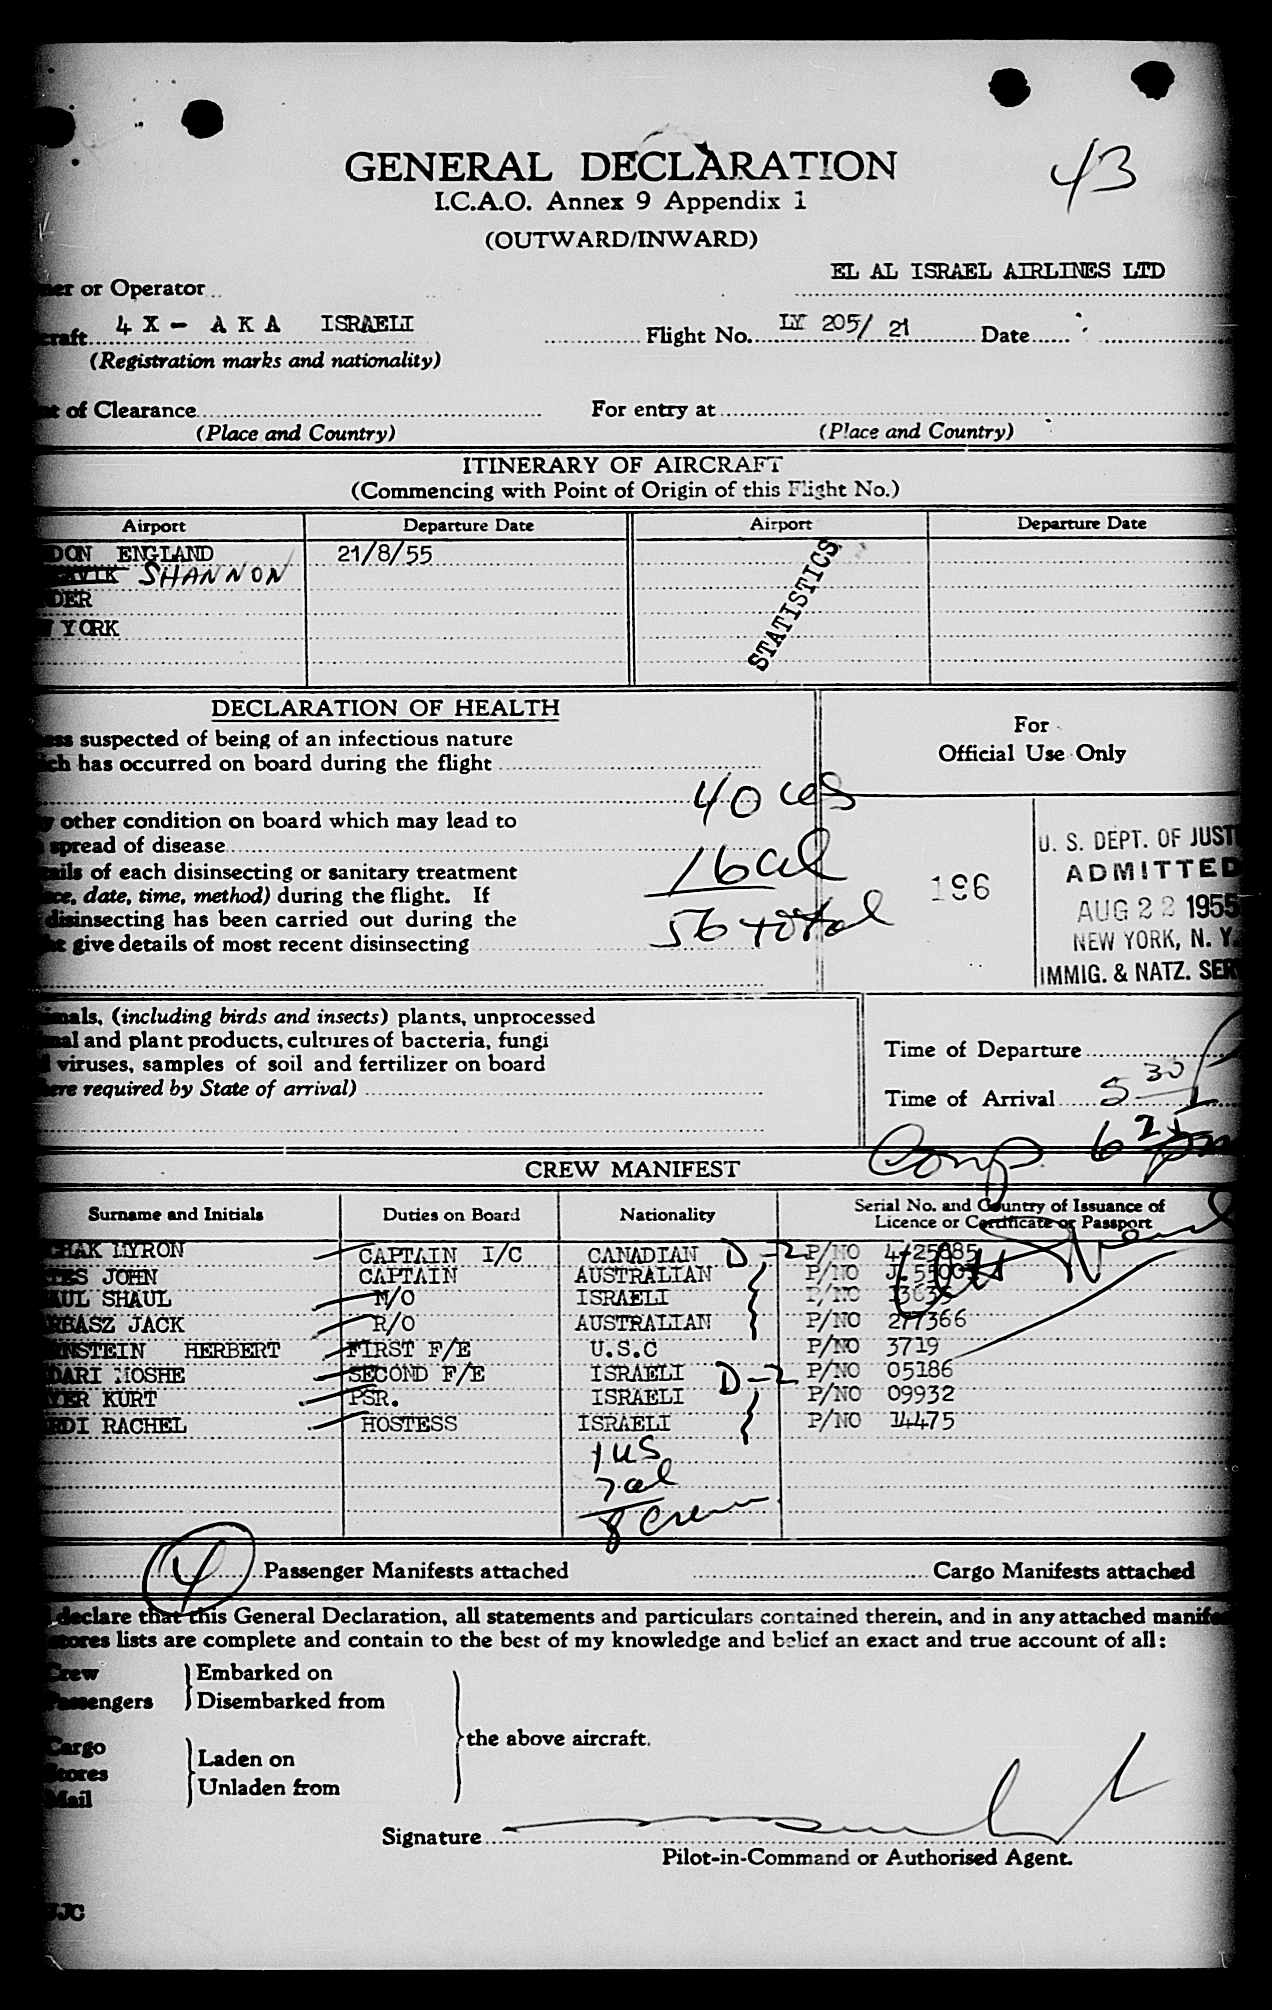 43
GENERAL DECLARATION
I.C.A.O. Annex 9 Appendix 1
(OUTWARD/INWARD)
or Operator EL AL ISRAEL AIRLINES LTD
4 X - A K A ISRAELI Flight No. LY 205/ 21 Date
(Registration marks and nationality)
of Clearance For entry at
(Place and Country) (Place and Country)
ITINERARY OF AIRCRAFT
(Commencing with Point of Origin of this Flight No.)
Airport Departure Date Airport Departure Date
DON ENGLAND 21/8/55
AVIK SHANNON
DER
YORK
STATISTICS
DECLARATION OF HEALTH
For
Official Use Only
suspected of being of an infectious nature
has occurred on board during the flight
40
other condition on board which may lead to
spread of disease
16 al
56 total
of each disinsecting or sanitary treatment
date, time, method) during the flight. If
disinsecting has been carried out during the
give details of most recent disinsecting
196
U. S. DEPT. OF JUST
ADMITTED
AUG 22 1955
NEW YORK, N. Y.
IMMIG. & NATZ. SER
(including birds and insects) plants, unprocessed
and plant products, cultures of bacteria, fungi
viruses, samples of soil and fertilizer on board
required by State of arrival)
Time of Departure
Time of Arrival 5 30
Comp. 6 25 pm
CREW MANIFEST
Surname and Initials Duties on Board Nationality Serial No. and Country of Issuance of
Licence or Certificate or Passport
HAK MYRON CAPTAIN I/C CANADIAN D-2 P/NO 4-25885
ES JOHN CAPTAIN AUSTRALIAN P/NO
AUL SHAUL N/O ISRAELI P/NO 13635
BASZ JACK R/O AUSTRALIAN P/NO 277366
NSTEIN HERBERT FIRST F/E U.S.C P/NO 3719
DARI MOSHE SECOND F/E ISRAELI D-2 P/NO 05186
YER KURT PSR. ISRAELI P/NO 09932
RDI RACHEL HOSTESS ISRAELI P/NO 14475
1 US
7 al
8 Crew
4 Passenger Manifests attached Cargo Manifests attached
declare that this General Declaration, all statements and particulars contained therein, and in any attached manifes
stores lists are complete and contain to the best of my knowledge and belief an exact and true account of all:
Crew Embarked on
Passengers Disembarked from
the above aircraft.
Cargo Laden on
Stores
Mail Unladen from
Signature
Pilot-in-Command or Authorised Agent.
JC